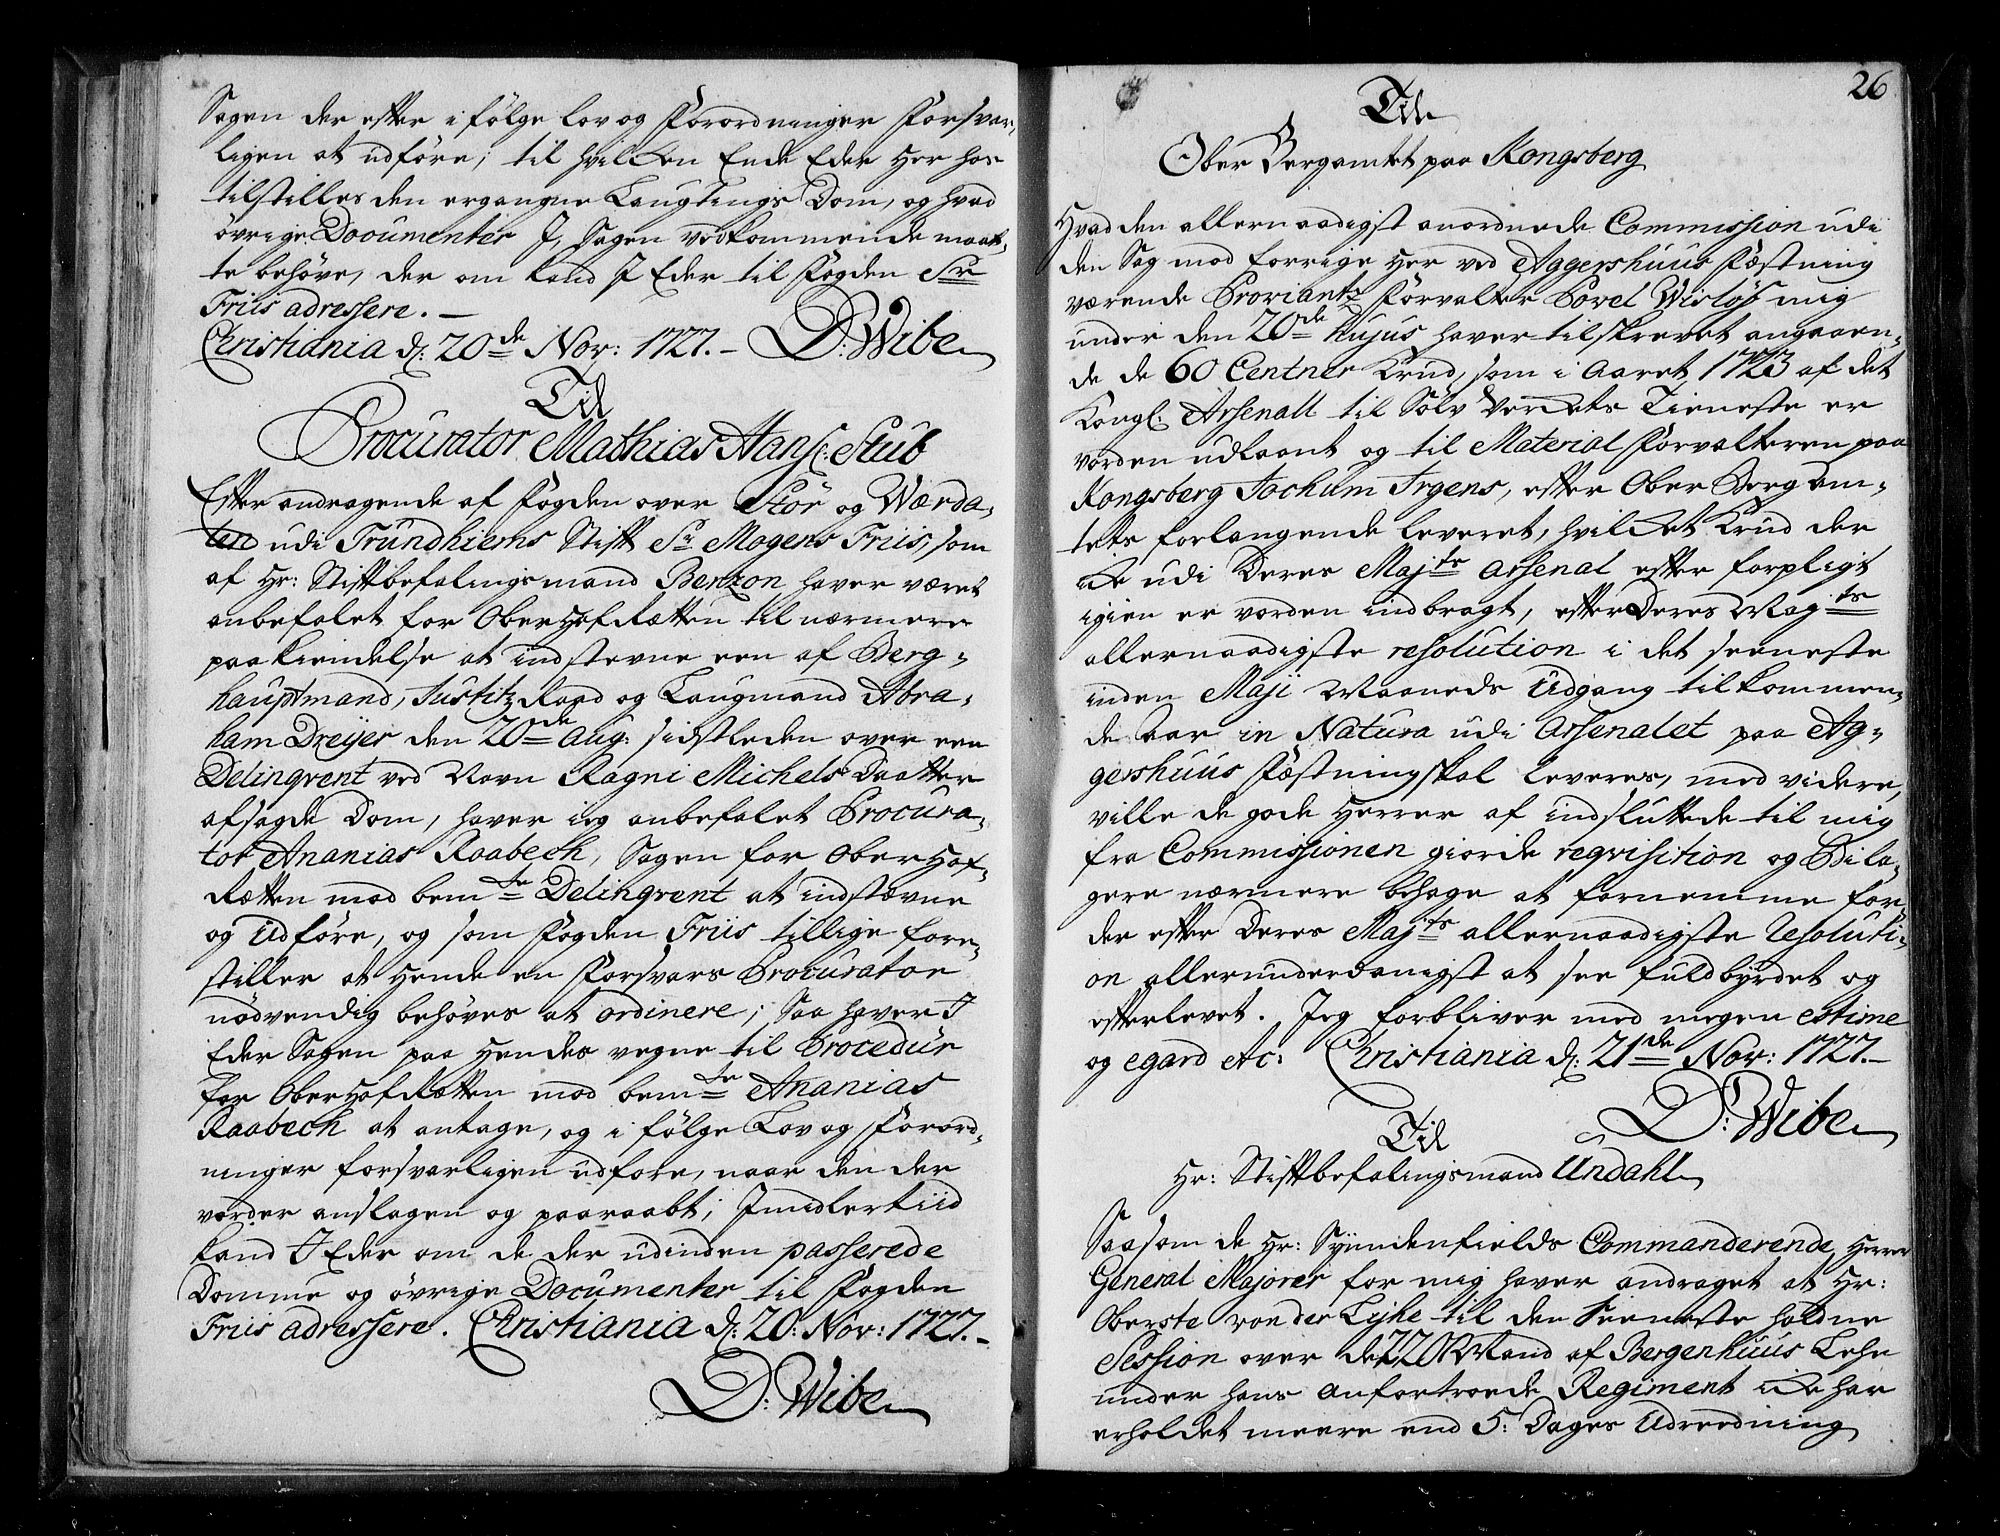 Sagen der efter i følge Lov og Forordninger Forsvar,
ligen at udføre; til hvilken Ende Eder her hos
tilstilles den ergangne Laugtings Dom, og hvad
øvrige Documenter I, Sagen vedkommende maat,
te behøve, der om kand I Eder til Fogden Sr
Friis adressere. —
Christiania d: 20de Nov: 1727. — D: Wibe
Til
Procurator Mathias Hansf: Stub
Efter andragende af Fogden over Stør og Værda,
len udi Trundhiems Stift Sr Mogens Friis, som
af Hr: Stiftbefalingsmand Benzon haver været
anbefalet for OberHofRetten til nærmere
paakiendelse at indstevne een af Berg,
hauptmand, Justitz Raad og Laugmand Abra,
ham Dreÿer den 20de Aug: sidstleden over een
Delinqvent ved Navn Ragni Michels Daatter
afsagde Dom, haver ieg anbefalet Procura,
tor Ananias Raabech, Sagen for OberHof,
Retten mod bemte Delinqvent at indstævne
og Udføre, og som Fogden Friis tillige fore,
stiller at Hende en Forsvars Procurator
nødvendig behøves at ordinere; Saa haver I
Eder Sagen paa Hendes vegne til Procedur
for OberHofRetten mod bemte Ananias
Raabech at antage, og i følge Lov og Forord,
ninger forsvarligen udføre, naar den der
vorder anslagen og paaraabt; Imidlertiid
kand I Eder om de der udinden passerede
Domme og øvrige Documenter til Fogden
Friis adressere. Christiania d: 20: Nov: 1727. —
D: Wibe
26
Til
Ober Bergamtet paa Kongsberg
Hvad den allernaadigst anordnede Commission udi
den Sag mod forrige her ved Aggershuus Fæstning
værende Proviantz Forvalter Povel Wisløf mig
under den 20de hujus haver tilskrevet angaaen,
de de 60 Centner Krud, som i Aaret 1723 af det
Kongl: Arsenall til Sølv Verkets Tieneste er
vorden udlaant og til Material Forvalteren paa
Kongsberg Jochum Irgens, efter Ober Berg Am,
tets forlangende leveret, hvilket Krud der
ike udi Deres Majts Arsenal efter forpligt
igien er vorden indbragt, efter Deres Mayts
allernaadigste resolution i det seeneste
inden Maji Maaneds Udgang tilkommen,
de Aar in Natura udi Arsenalet paa Ag,
gershuus Fæstning skal leveres, med videre,
ville de gode Herrer af indsluttede til mig
fra Commissionen giorde reqvisition og Bila,
gere nærmere behage at fornemme for,
der efter Deres Majts allernaadigste Resoluti,
on allerunderdanigst at see fuldbyrdet og
efterlevet. Jeg forbliver med megen estime
og egard etc: Christiania d: 21de Nov: 1727. —
D: Wibe
Til
Hr: Stiftbefalingsmand Undahl
Saasom de Hr: Syndenfields Commanderende Herrer
General Majorer for mig haver andraget at Hr:
Oberste von der Lÿhe til den seeneste holdne
Session over de 220 Mand af Bergenhuus Lehn
under hans anfortroede Regiment ike har
erholdet meere end 5: Dages Udreedning